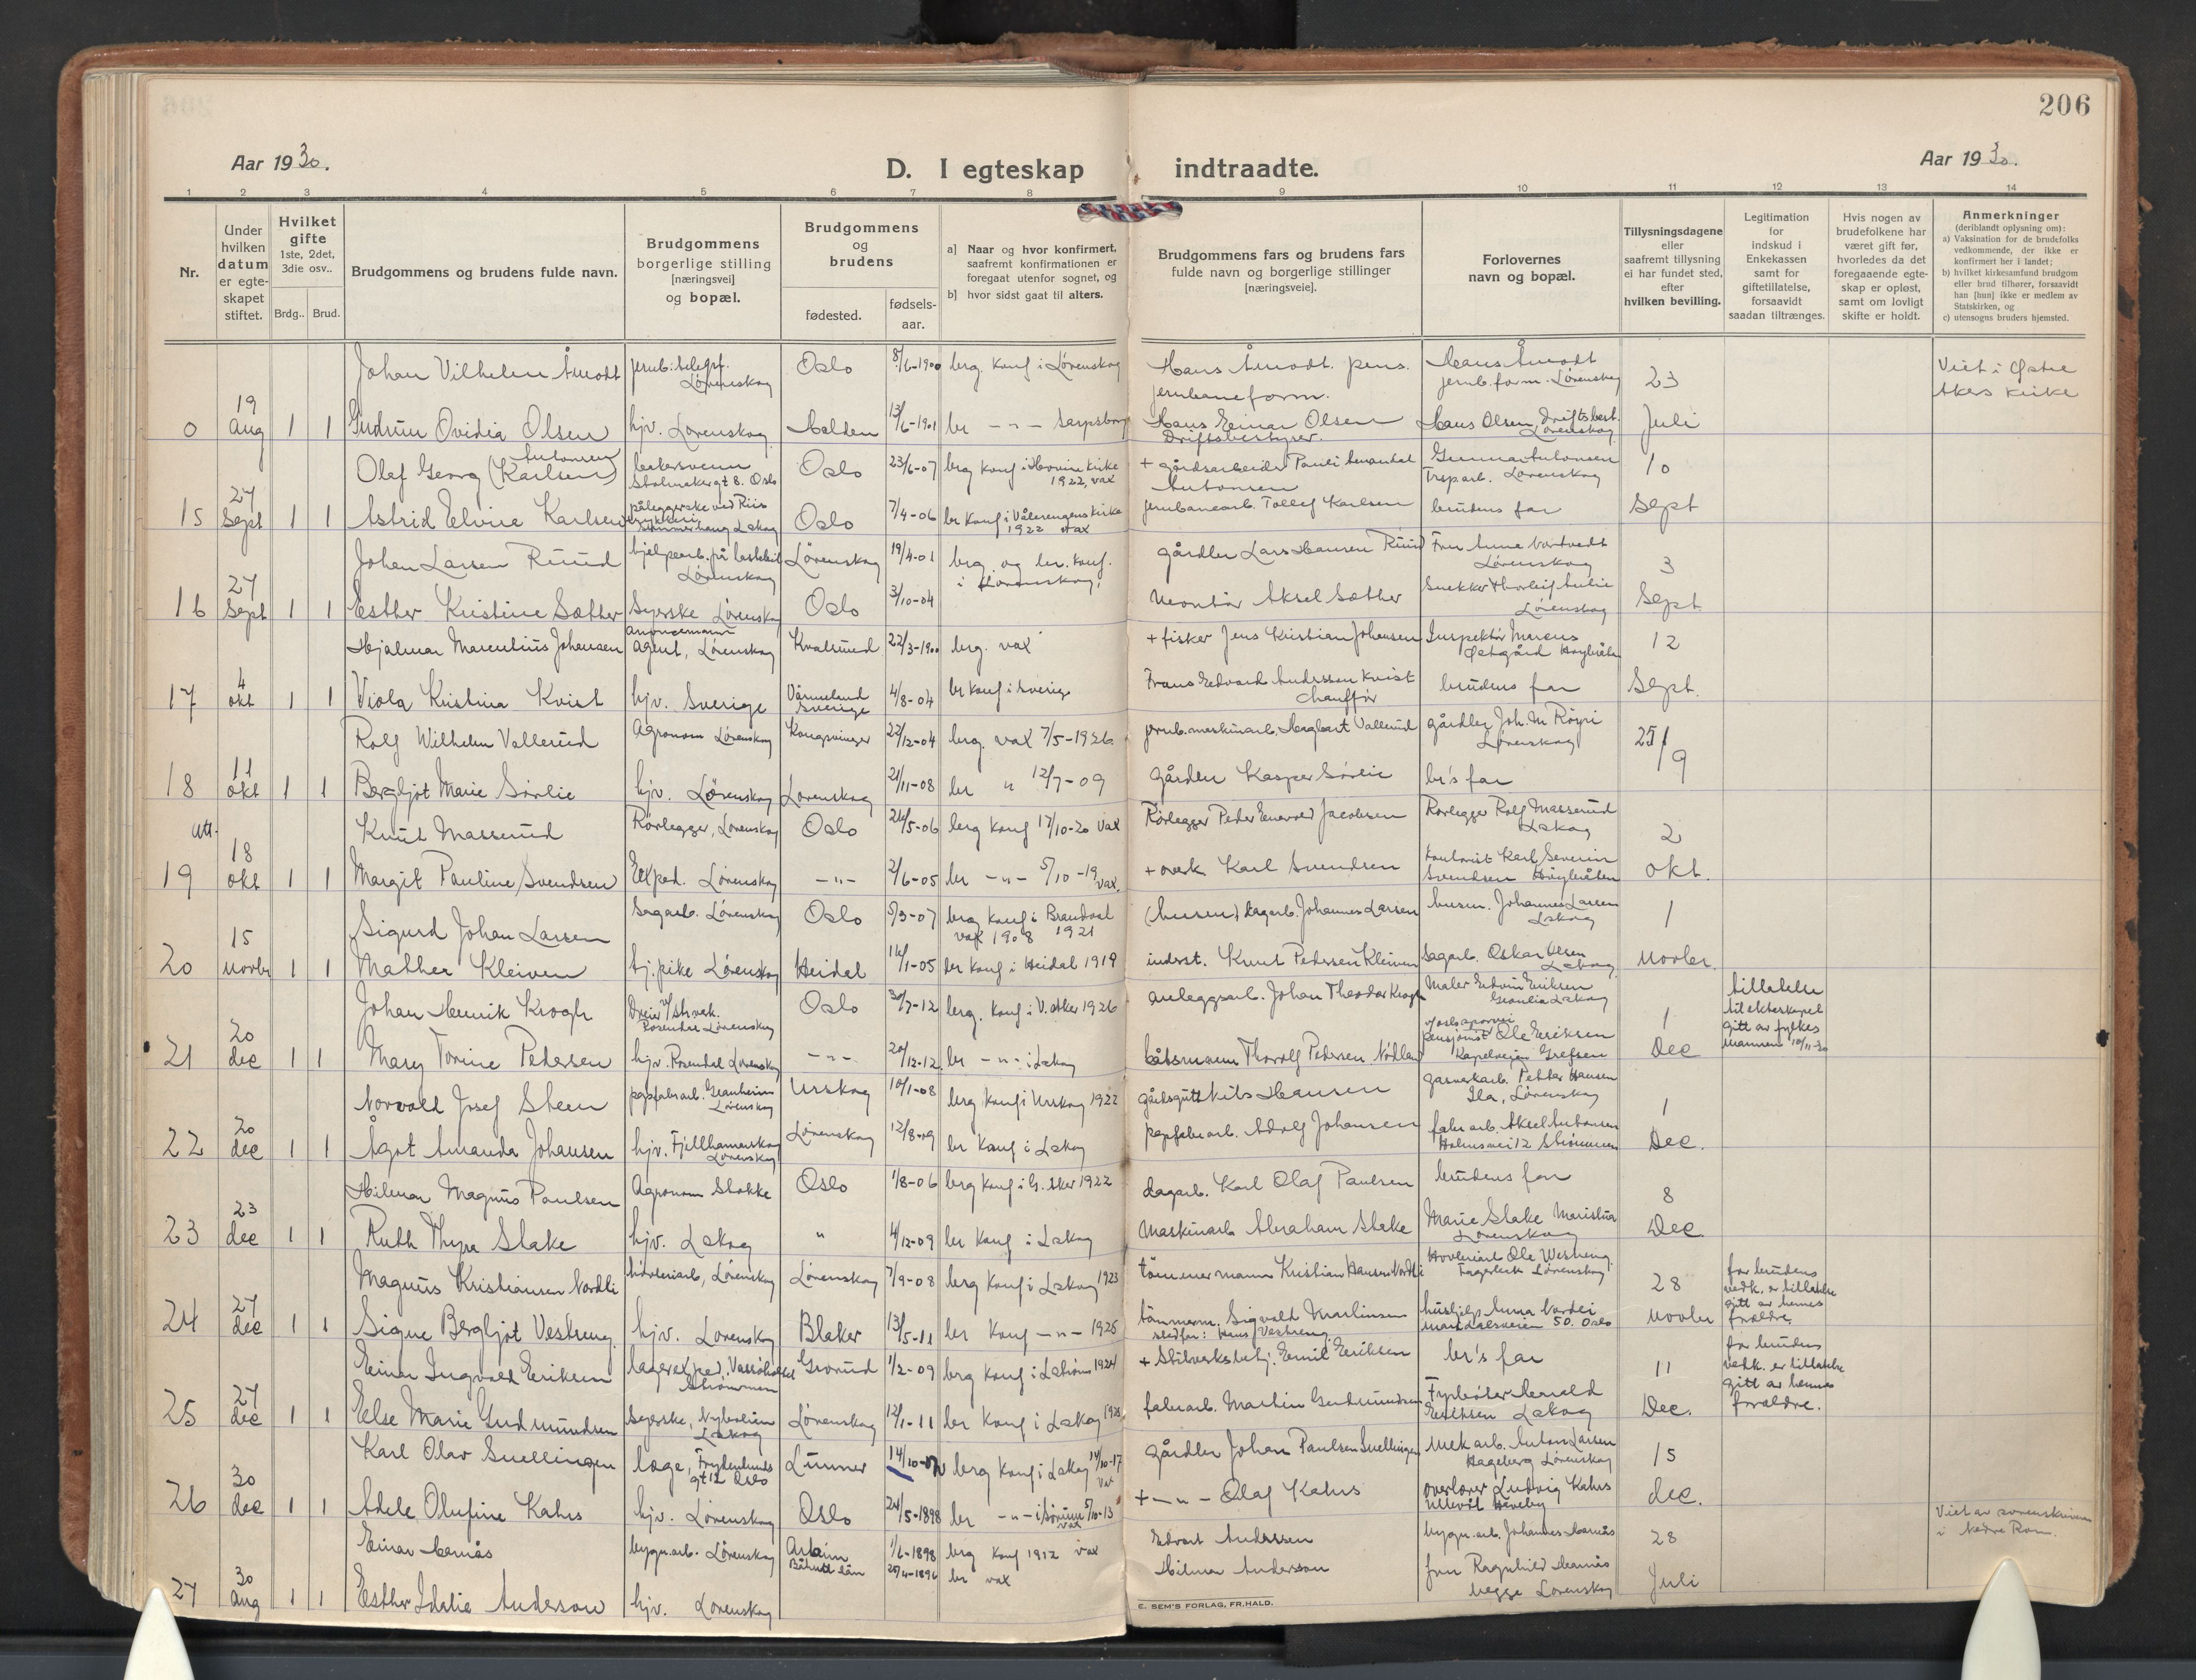 206
Aar 1930.
D. I egteskap indtraadte.
Aar 1930.
1 2 3 4 5 6 7 8 9 10 11 12 13 14
Nr.
Under
hvilken
datum
er egte-
skapet
stiftet.
Hvilket
gifte
1ste, 2det,
3die osv..
Brdg.. Brud.
Brudgommens og brudens fulde navn.
Brudgommens
borgerlige stilling
[næringsvei]
og bopæl.
Brudgommens
og
brudens
fødested.
fødsels-
aar.
a] Naar og hvor konfirmert,
saafremt konfirmationen er
foregaat utenfor sognet, og
b] hvor sidst gaat til alters.
Brudgommens fars og brudens fars
fulde navn og borgerlige stillinger
[næringsveie].
Forlovernes
navn og bopæl.
Tillysningsdagene
eller
saafremt tillysning
ei har fundet sted,
efter
hvilken bevilling.
Legitimation
for
indskud i
Enkekassen
samt for
giftetillatelse,
forsaavidt
saadan tiltrænges.
Hvis nogen av
brudefolkene har
været gift før,
hvorledes da det
foregaaende egte-
skap er opløst,
samt om lovligt
skifte er holdt.
Anmerkninger
(deriblandt oplysning om):
a) Vaksination for de brudefolks
vedkommende, der ikke er
konfirmert her i landet;
b) hvilket kirkesamfund brudgom
eller brud tilhører, forsaavidt
han [hun] ikke er medlem av
Statskirken, og
c) utensogns bruders hjemsted.
Johan Vilhelm Åmodt jernb.telegrf. Lørenskog Oslo 8/6-1900 brg. konf i Lørenskog Hans Åmodt. pens. jernbaneform. Hans Åmodt jernb.form. Lørenskog 23 Viet i Østre Akers kirke
0 19 Aug 1 1 Gudrun Ovidia Olsen hjv. Lørenskog Halden 13/6-1901 br -"- Sarpsborg Hans Einar Olsen Driftsbestyrer. Hans Olsen, Driftsbest. Lørenskog Juli
Olaf Georg (Karlsen) Antonsen Oslo 23/6-07 brg konf i Hovin kirke 1922, vax + gårdsarbeider Pauli Antonsen Gunnar Antonsen Lørenskog 10
15 27 Sept 1 1 Astrid Elvira Karlsen påleggerske ved Riis Oslo 7/4-06 br konf i Vålerengens kirke 1922 vax jernbanearb. Tollef Karlsen brudens far Sept
Johan Larsen Ruud hjelpearb. på lastebil Lørenskog Lørenskog 19/4-01 brg. og br. konf. i Lørenskog. gårdbr Lars Hansen Ruud Fru Anne Nordvedt Lørenskog 3
16 27 Sept 1 1 Esther Kristine Sæther Syerske Lørenskog Oslo 3/10-04 Montør Aksel Sæther Snekker Thorleif Lørenskog Sept
Hjalmar Marenlius Johansen Agent, Lørenskog Kvalsund 22/3-1900 brg. vax + fisker Jens Kristian Johansen Inspektør Marcus Østgård Høybråten 12
17 4 okt 1 1 Viola Kristina Kvist hjv. Sverige Värmeland Sverige 4/8-04 br konf i Sverige Frans Edvard Andersson Kvist chauffør brudens far Sept.
Rolf Wilhelm Vallerud Agronom Lørenskog Kongsvinger 22/12-04 brg. vax 7/5-1926 jernb.maskinarb. Hagbart Vallerud gårdbr Joh. M Röyri Lørenskog 25/9
18 11 okt 1 1 Bergljot Marie Sörlie hjv. Lørenskog Lørenskog 21/11-08 br " 12/7-09 Gårdbr Kasper Sörlie br's far
utt. Knut Masserud Rörlegger, Lørenskog Oslo 26/5-06 brg konf 17/10-20 Vax Rörlegger Peder Enevold Jacobsen Rørlegger Rolf Masserud Lskog 2
19 18 okt 1 1 Margit Pauline Svendsen Exped. Lørenskog -"- 2/6-05 br -"- 5/10-19 vax. + Karl Svendsen Karl Severin Svendsen Høybråten okt.
Sigurd Johan Larsen Sagarb. Lørenskog Oslo 5/3-07 brg konf i Brandval 1921 vax 1908 Dagarb. Johannes Larsen Johannes Larsen Lskog 1
20 15 novbr 1 1 Mathea Kleiven tj.pike Lørenskog Heidal 16/1-05 br konf i Heidal 1919 inderst. Knut Pedersen Kleiven Sagarb. Oskar Olsen Lskog Novbr.
Johan Henrik Krogh Oslo 30/7-12 brg. konf i V. Aker 1926 anleggsarb. Johan Theodor Krogh Maler Edvin Eriksen Lskog 1 tillatelse til ekteskapet gitt av fylkesmannen 10/11-30
21 20 dec 1 1 Mary Torine Pedersen hjv. Rosendal Lørenskog -"- 20/12-12 br -"- i Lskog båtsmann Thorolf Pedersen. pensjonist Ole Eriksen Kapelveien Grefsen Dec
Norvald Josef Steen papfabr.arb. Granheim Lørenskog Urskog 10/1-08 brg konf i Urskog 1922 gårdsgutt Nils Hansen garverarb. Petter Hansen Lørenskog 1
22 20 dec 1 1 Ågot Amanda Johansen hjv. Fjellhamarskog Lørenskog Lørenskog 12/8-09 br konf i Lskog papfabr.arb. Adolf Johansen fabr.arb. Aksel Antonsen Holmsvei 12 Strømmen Dec.
Hilmar Magnus Paulsen Agronom Stokke Oslo 1/8-06 brg konf i Ö. Aker 1922 dagarb. Karl Olaf Paulsen brudens far 8
23 23 dec 1 1 Ruth Thyra Stake hjv. Lskog " 4/12-09 br konf i Lskog Maskinarb Abraham Stake Marie Stake Lørenskog Dec
Magnus Kristiansen Nordli høvleriarb, Lørenskog Lørenskog 7/9-08 brg konf i Lskog 1923 tömmermann Kristian Hansen Nordli Høvleriarb Ole Westreng. Fagerbek Lørenskog 28 for brudens vedk. er tillatelse gitt av hennes foreldre.
24 27 dec 1 1 Signe Bergljot Vestreng hjv. Lørenskog Blaker 13/5-11 br konf -"- 1926 tömmerm. Sigvald Martinsen stedfar: Hans Vestreng. hushjelp Anna Nordli Maridalsveien 50. Oslo Novbr
Einar Ingvald Eriksen lagerexped, Strømmen Grorud 1/2-09 brg konf i Lstrøm 1924 + Emil Eriksen br's far 11 for brudens vedk. er tillatelse gitt av hennes foreldre.
25 27 dec 1 1 Else Marie Gudmundsen Syerske, Nyheim Lskog Lørenskog 12/1-11 br konf i Lskog fabr.arb. Martin Gudmundsen Fyrbøter Harald Eriksen Lskog Dec.
Karl Olav Snellingen læge, Frydenlunds gt 12 Oslo Lunner 14/10-02 brg konf i Lskog 14/10-17 gårdbr Johan Paulsen Snellingen Mek arb. Anton Larsen Hageberg Lørenskog 15
26 30 dec 1 1 Adele Olufine Kahrs hjv. Lørenskog Oslo 24/5-1898 br -"- i Sørum 5/10-13 vax + -"- Olaf Kahrs overlærer Ludvig Kahrs Ullevål Haveby dec.
Einar Hernås bygn.arb. Lørenskog 1/6-1898 brg konf 1912 vax Edvart Andersen bygn.arb. Johannes Hernås 28 Viet av sorenskriveren i Nedre Rom.
27 30 Aug 1 1 Esther Idalie Anderson hjv. Lørenskog 20/4-1896 br vax Hilmer Andersson fru Ragnhild Hernås begge Lørenskog Juli
E. SEM'S FORLAG, FR.HALD.